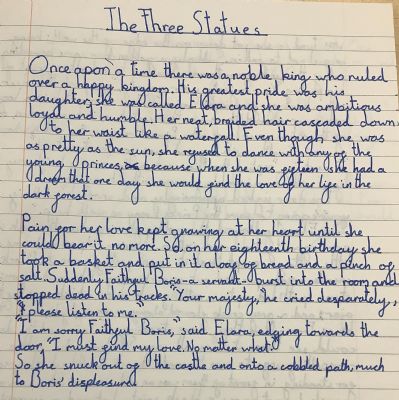 The Three Statues
Once apon a time there was a noble king who ruled
over a happy kingdom. His greatest pride was his
daughter; she was called Elara and she was ambitious
loyal and humble. Her neat, braided hair cascaded down
to her waist like a waterfall. Even though she was
as pretty as the sun, she refused to dance with any of the
young princes, because when she was fifteen she had a
dream that one day she would find the love of her life in the
dark forest.
Pain for her love kept gnawing at her heart until she
could bear it no more. So, on her eighteenth birthday she
took a basket and put in it a loaf of bread and a pinch of
salt. Suddenly Faithful Boris - a servant - burst into the room and
stopped dead in his tracks. "Your majesty," he cried desperately,
"please listen to me.
"I am sorry Faithful Boris," said Elara, edging towards the
door, "I must find my love. No matter what."
So she snuck out of the castle and onto a cobbled path, much
to Boris' displeasure.